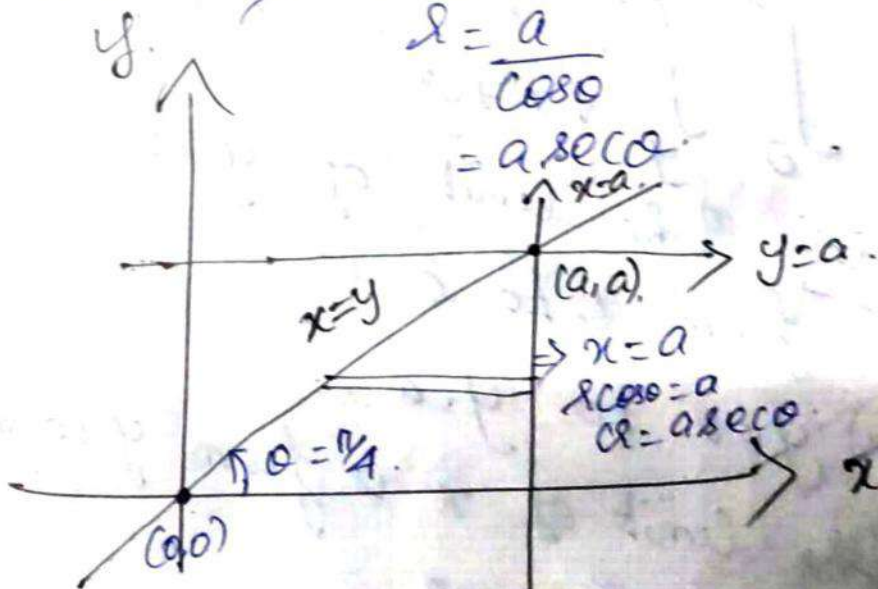 y.
r = a / cosθ
= a secθ
x=a
y=a.
(a,a).
x=y
⇒ x=a
rcosθ=a
r=asecθ
θ = π/4.
x
(0,0)